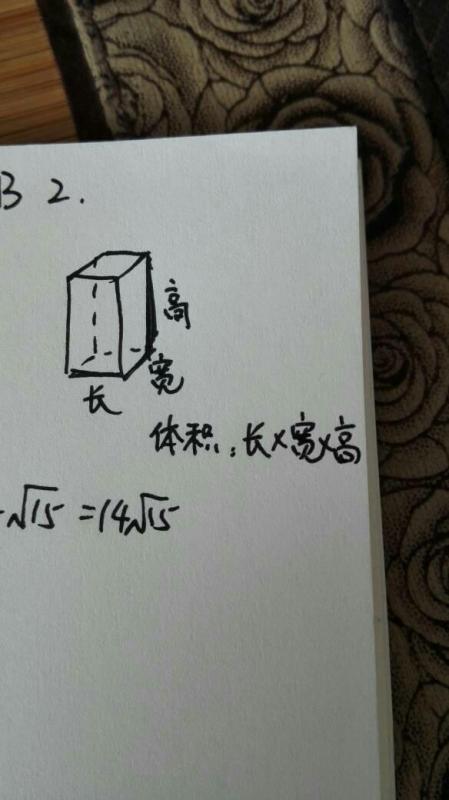 B 2.
高
宽
长
体积：长×宽×高
√15 =14√15